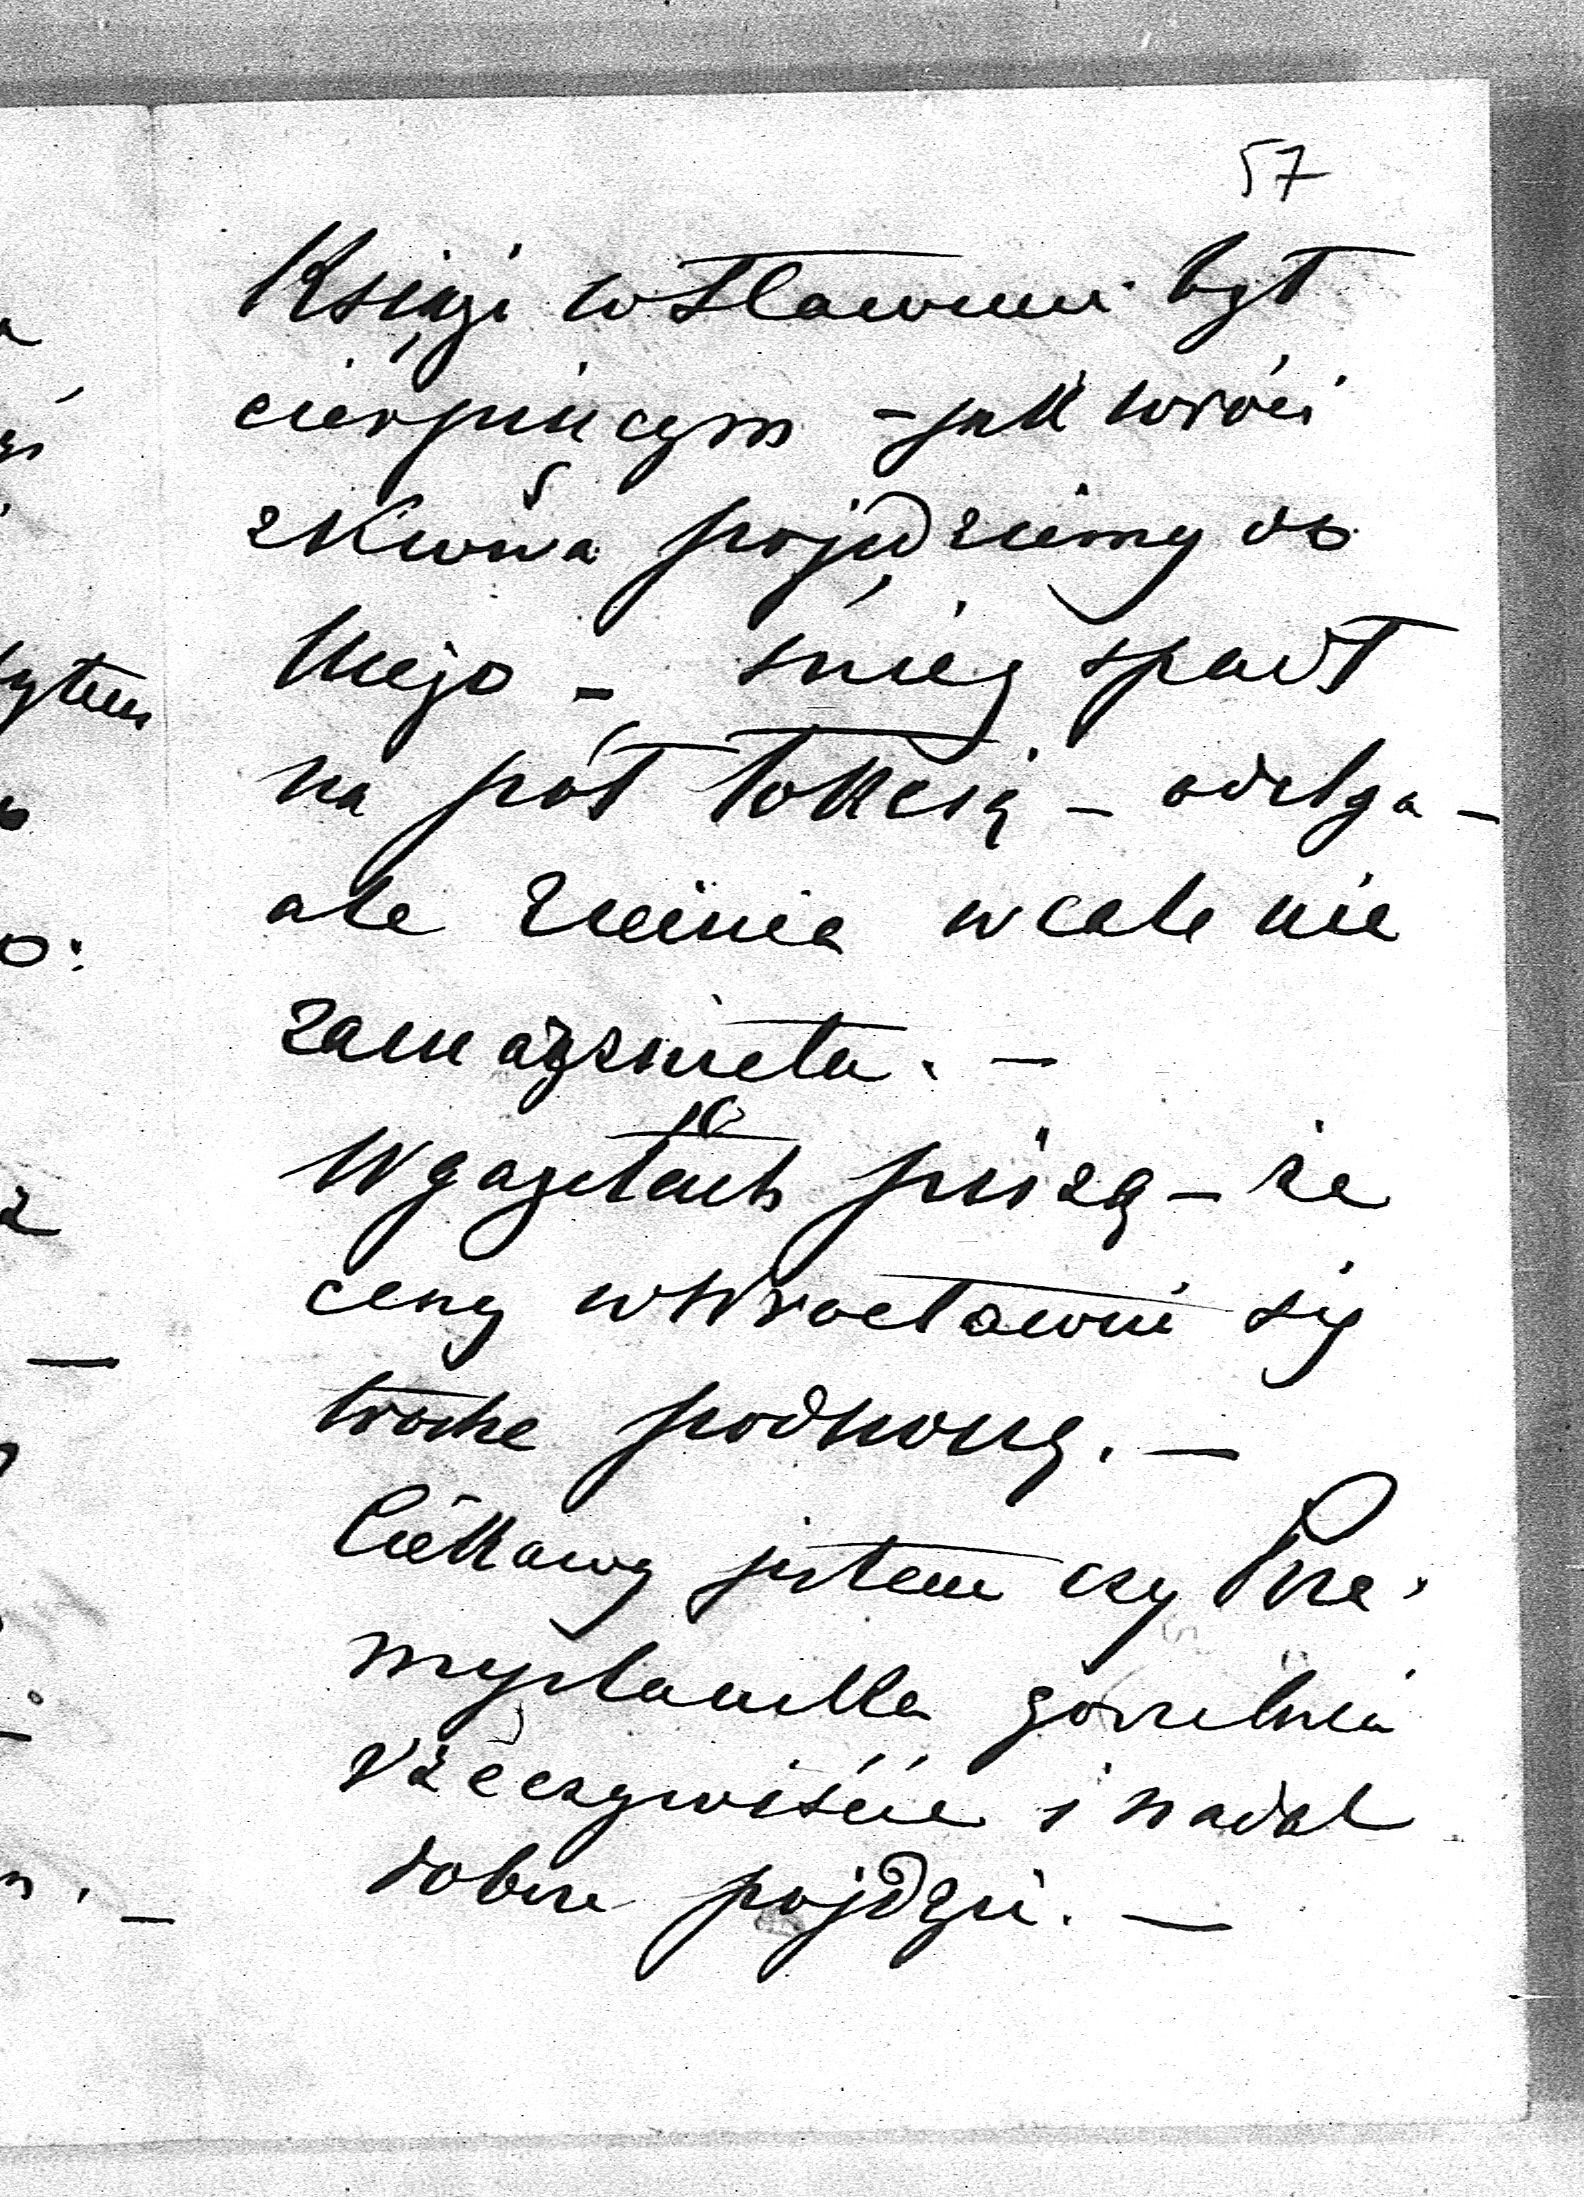 57
Książi w Sławinie był
cierpiącym – jak wróci
z Kiowa pojedziemy do
niego – śnieg spadł
na pół łokcią – odelga –
ale ziemia wcale nie
zamarznieta. –
W gazetach piszą – że
ceny w Wrocławiu się
troche podnoszą. –
Ciekawy jestem czy Prze-
mysłanska gorzelnia
rzeczywiście i nadal
dobrze pojdzie. –